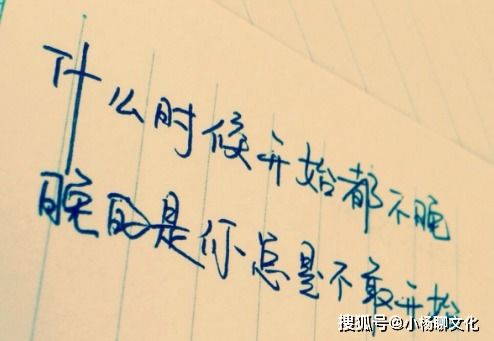 什么时候开始都不晚
晚的是你总是不敢开始
搜狐号@小杨聊文化